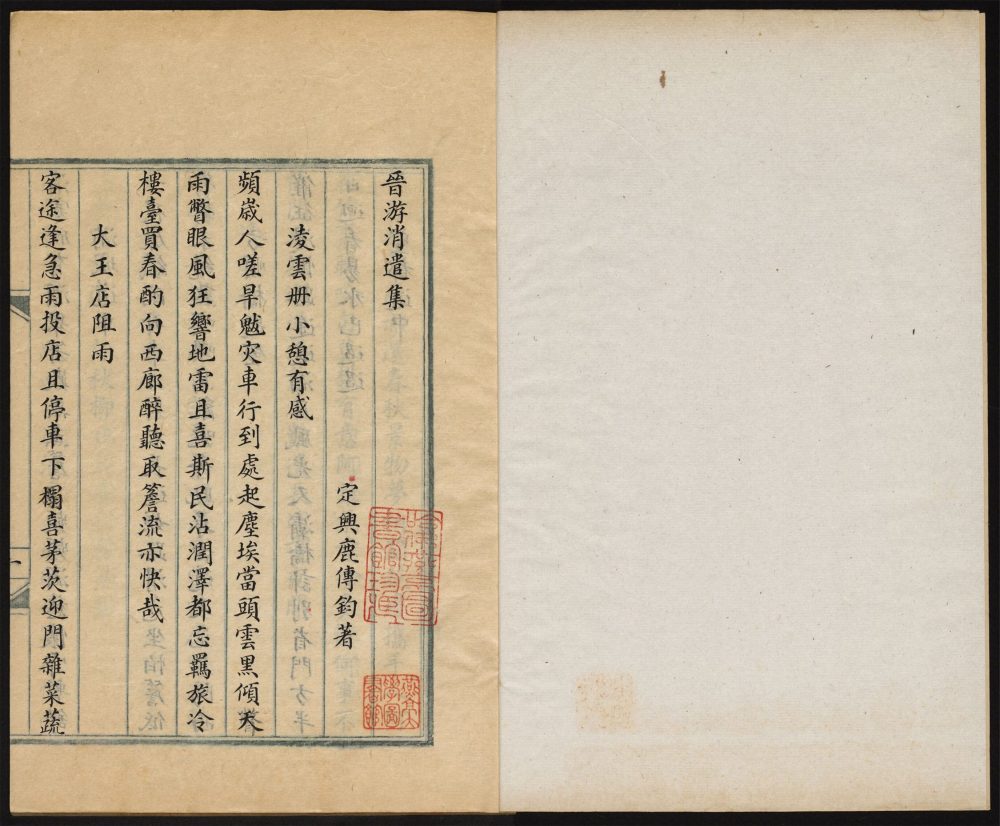 晉游消遣集
定興鹿傳鈞著
淩雲册小憩有感
頻歲人嗟旱魃灾車行到處起塵埃當頭雲黑傾天
雨瞥眼風狂響地雷且喜斯民沾潤澤都忘羈旅冷
樓臺買春酌向西廊醉聽取簷流亦快哉
大王店阻雨
客途逢急雨投店且停車下榻喜茅茨迎門雜菜蔬
燕京大學圖書館